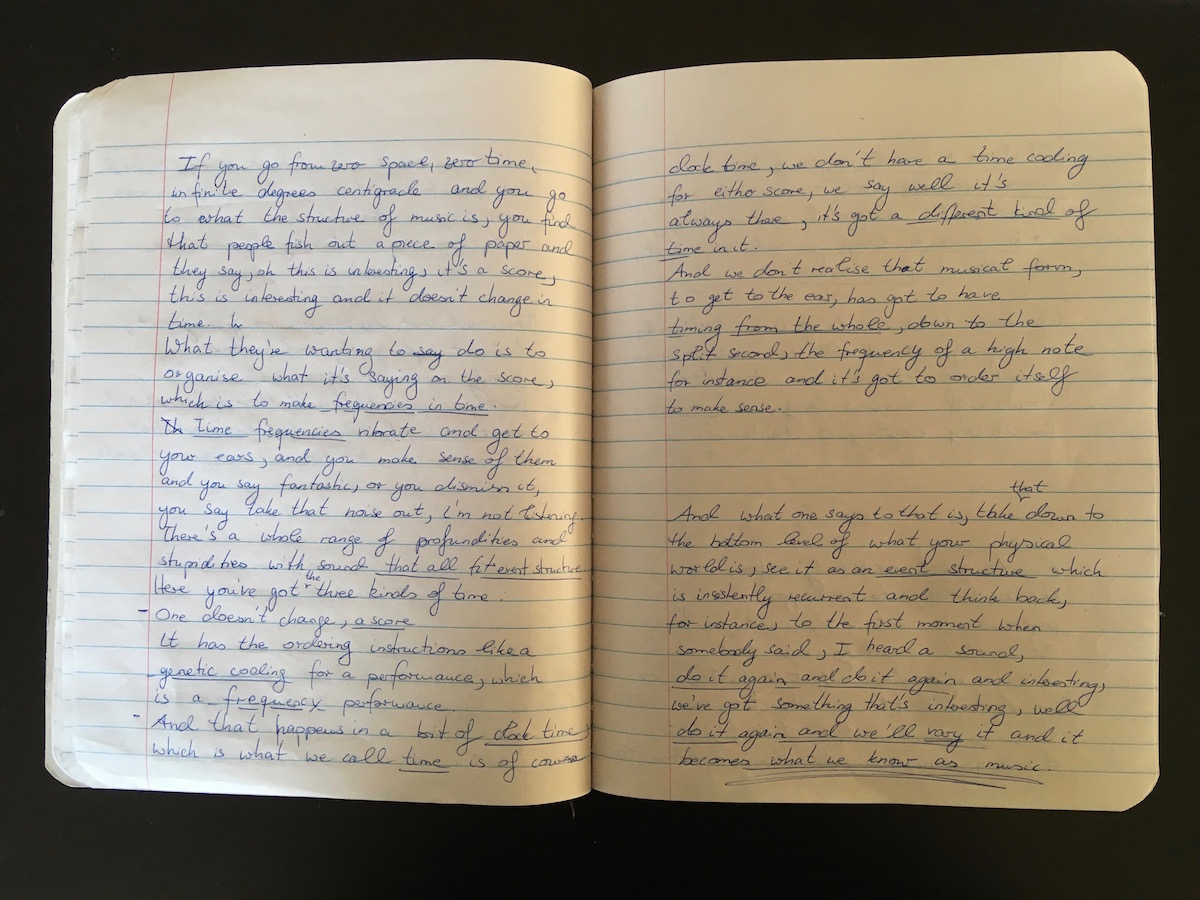 If you go from zero space, zero time,
infinite degrees centigrade and you go
to what the structure of music is, you find
that people fish out a piece of paper and
they say, oh this is interesting, it's a score,
this is interesting and it doesn't change in
time.
What they're wanting to say do is to
organise what it's saying on the score,
which is to make frequencies in time.
Th Time frequencies vibrate and get to
your ears, and you make sense of them
and you say fantastic, or you dismiss it,
you say take that noise out, I'm not listening.
There's a whole range of profundities and
stupidities with sound that all fit event structure
Here you've got the three kinds of time.
- One doesn't change, a score
It has the ordering instructions like a
genetic coding for a performance, which
is a frequency performance.
- And that happens in a bit of clock time,
which is what we call time is of course
clock time, we don't have a time coding
for either score, we say well it's
always there, it's got a different kind of
time in it.
And we don't realise that musical form,
to get to the ear, has got to have
timing from the whole, down to the
split second, the frequency of a high note
for instance and it's got to order itself
to make sense.
And what one says to that is, take that down to
the bottom level of what your physical
world is, see it as an event structure which
is insistently recurrent and think back,
for instance, to the first moment when
somebody said, I heard a sound,
do it again and do it again and interesting,
we've got something that's interesting, we'll
do it again and we'll vary it and it
becomes what we know as music.